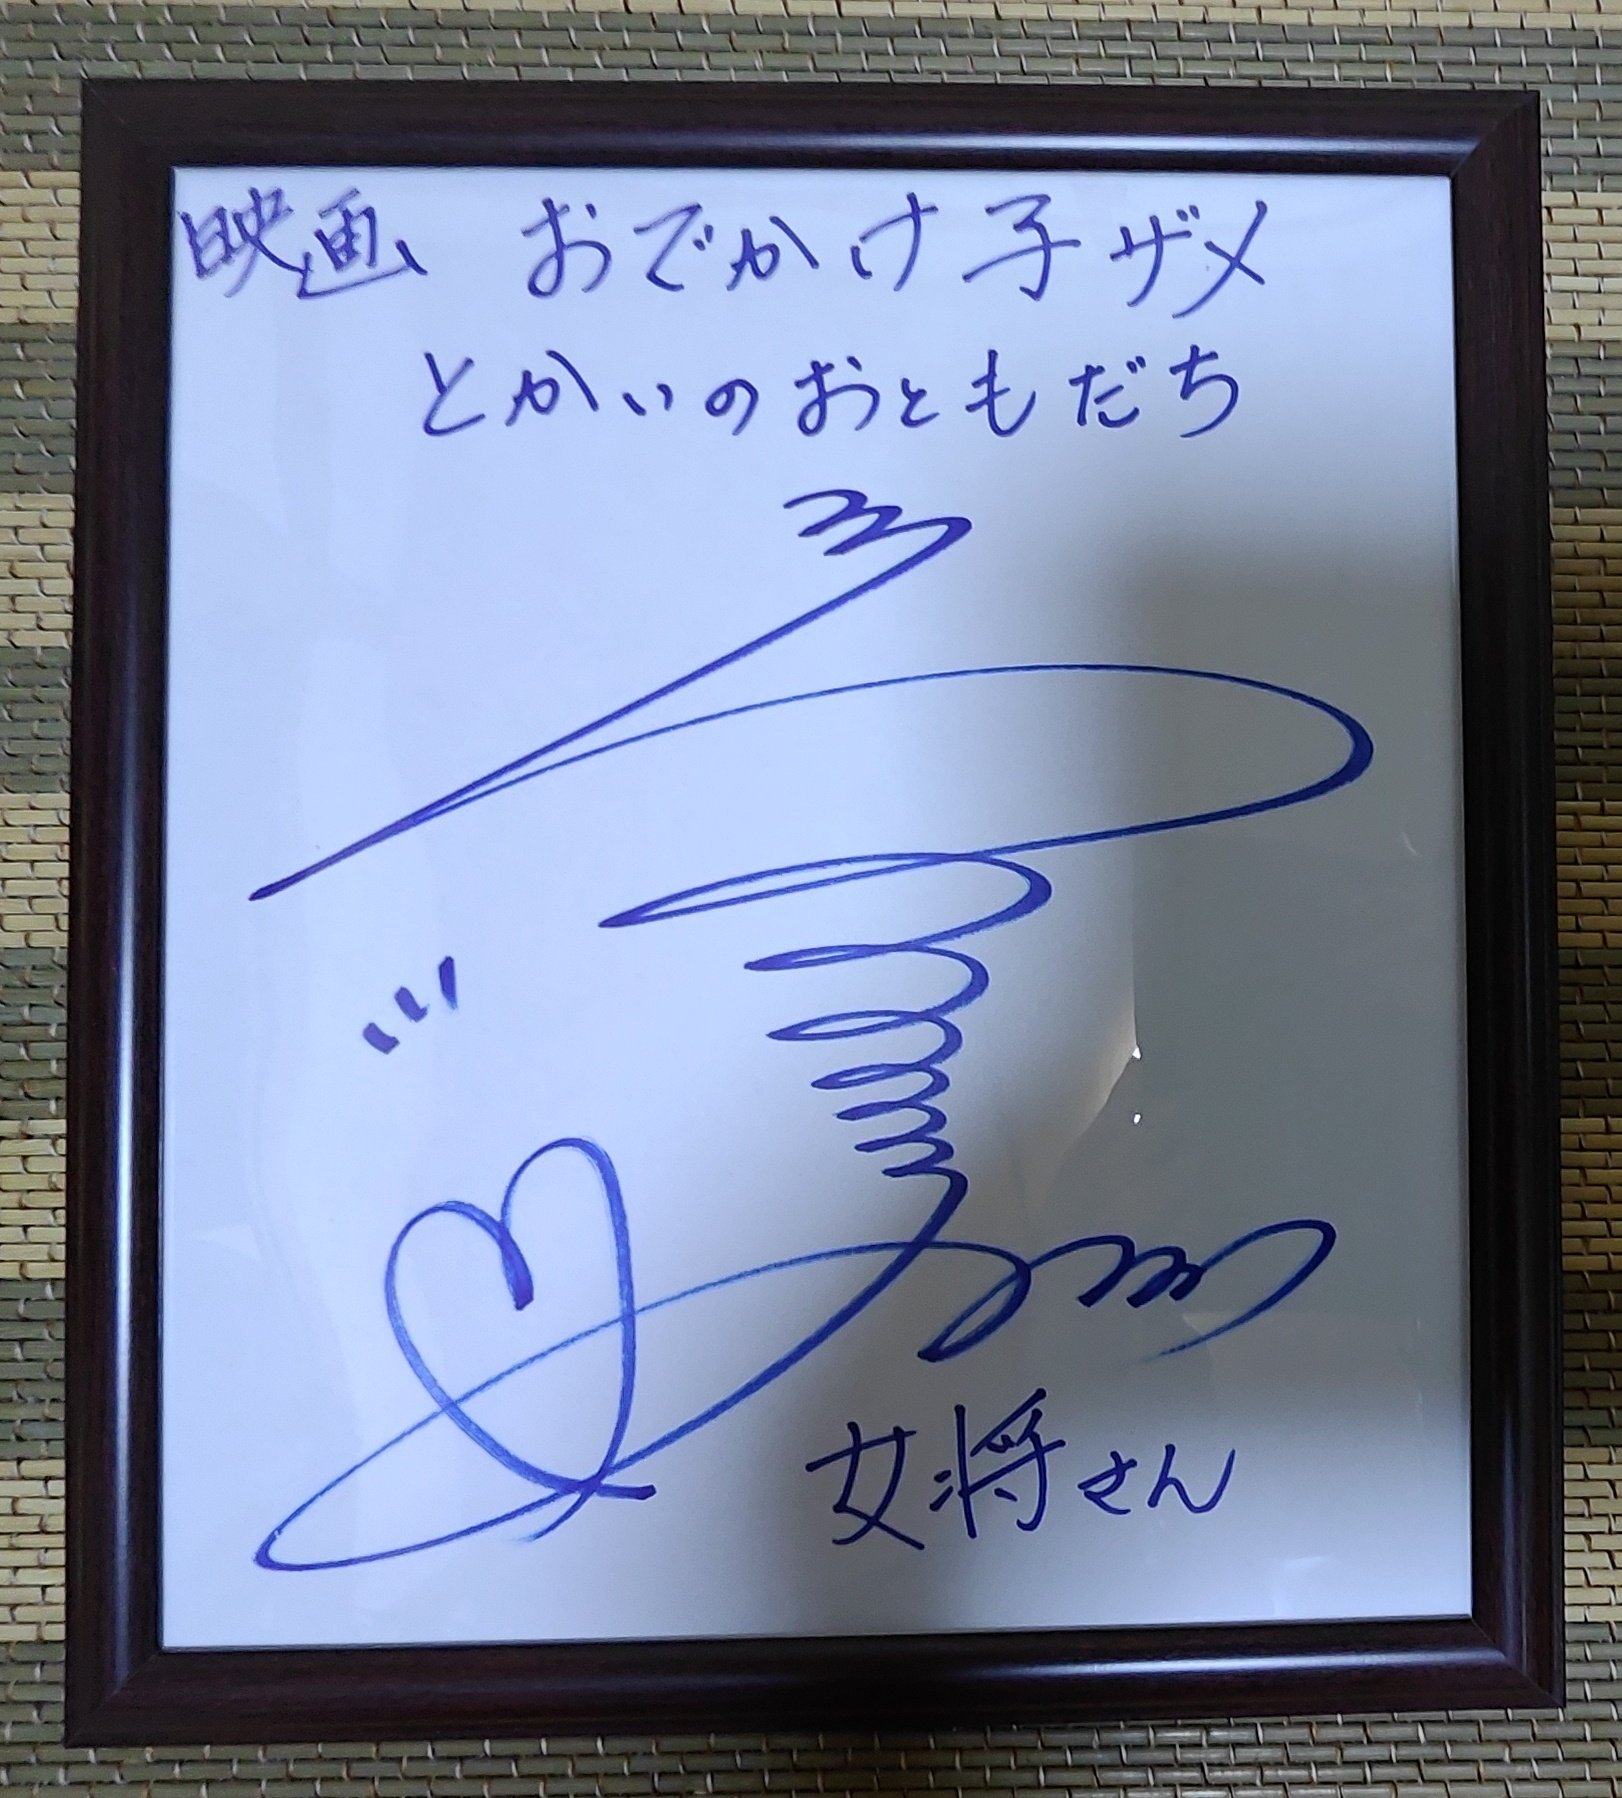 映画 おでかけ子ザメ
とかいのおともだち
女将さん